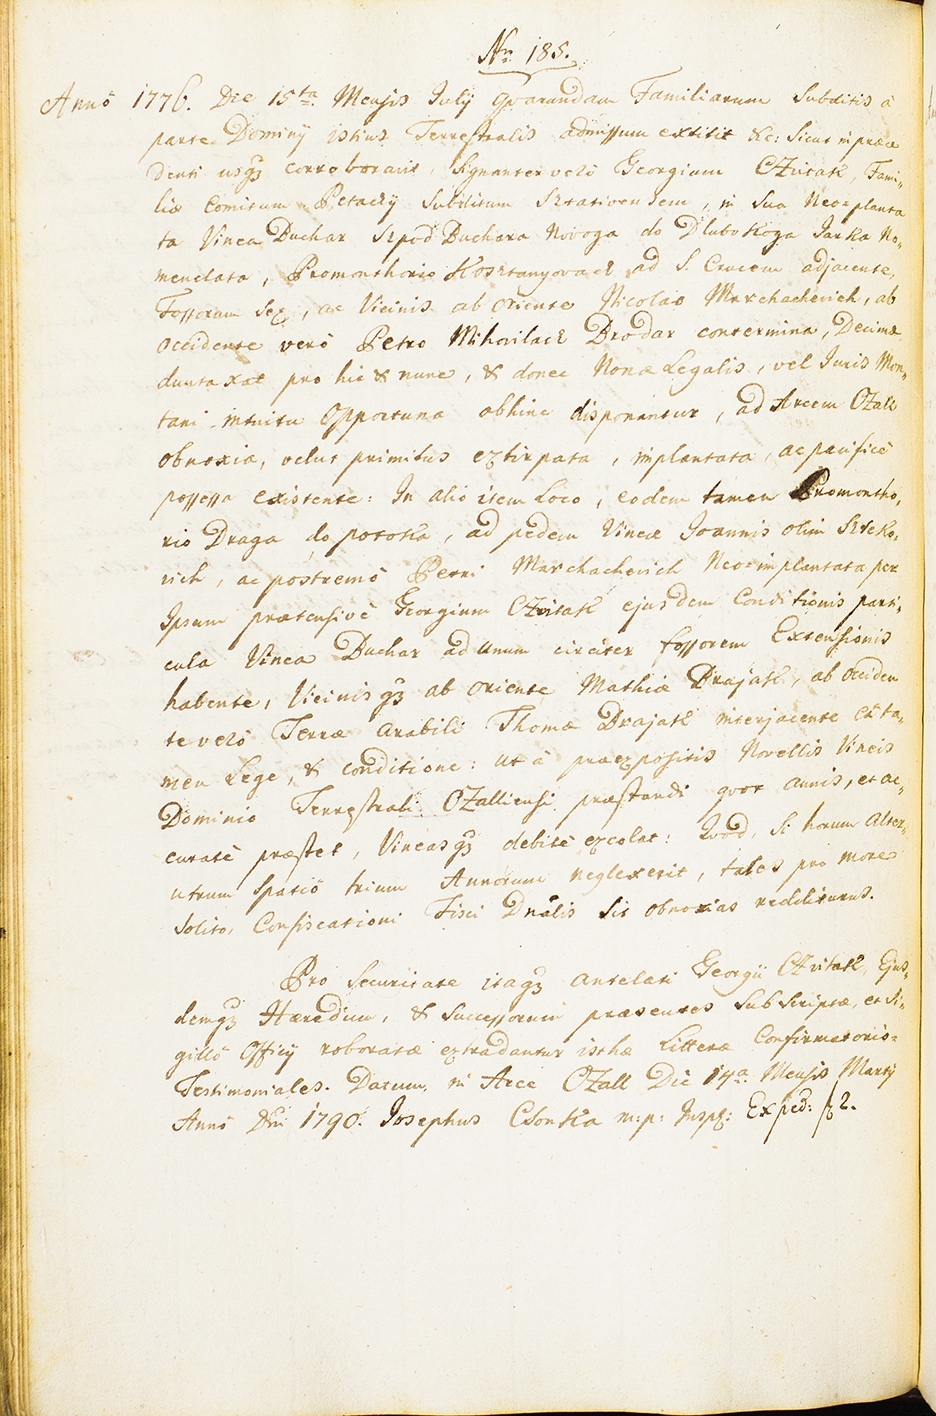 Nr. 185.
Annô 1776. Die 15ta. Mensis Julij Qvarundam Familiarum Subditis â
parte Dominij istius Terrestralis admissum extitit &c: sicut in præce
denti usq3 corroboravit, Signanter verô Georgium OZvitatk, Fami-
liæ Comitum Petachÿ Subditum, in Sua Neo=planta
ta Vinea Buchar Szpod Buchara Novoga do Dlubokoga Jarka No-
menclata, Promonthorio Kosztanyovach ad S. Crucem adjacente,
Fossorum Sex, ac Vicinis ab oriente Nicolao Mrchacherich, ab
occidente verô Petro Mihorilach Brodar contermina, Decimæ
duntaxat pro hic & nunc, & donec Nonæ Legalis, vel Juris Mon-
tani intuitu opportuna obhinc disponantur, ad Arcem OZall
obnoxia, velut primitus extirpata, implantata, ac pacificè
possessa existente: In aliô item Loco, eodem tamen Promontho-
rio Draga do potoka, ad pedem Vineæ Joannis olim
vich, ac postremô Petri Mrchacherich Neo=implantata per
Ipsum prætensivè Georgium OZvitatk ejusdem Conditionis parti-
cula Vinea Buchar ad unum circiter fossorem Extensionis
habente, Vicinisq3 ab oriente Mathiæ Brajatk, ab occiden
te verô Terræ arabili Thomæ Brajatk interjacente eâ ta-
men Lege, & conditione: ut â præexpositis Novellis Vineis
Dominio Terrestrali OZalliensi præstandi qvot annis, et ac-
curatè præstet, Vineasq3 debitè excolat: Qvod, Si horum alter-
utrum Spatiô trium Annorum neglexerit, tales pro more
Solito, Confiscationi Fisci Dnâlis Sit obnoxias redditurus.
Pro Securitate itaq3 antelati Georgii OZvitatk, Ejus-
demq3 Hæredum, & Successorum præsentes Subscriptæ, et Si-
gillô Officij roboratæ extradantur isthæ Litteræ Confirmatoriæ=
Testimoniales. Datum in Arce OZall Die 14a. Mensis Martÿ
Annô Dni 1790. Josephus Csonka m: p: Insp: Exped: f 2.